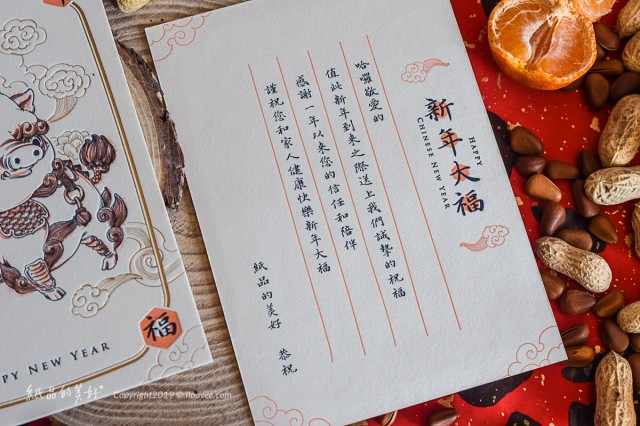 新年大福
HAPPY
CHINESE NEW YEAR
哈囉敬愛的
值此新年到來之際送上我們誠摯的祝福
感謝一年以來您的信任和陪伴
謹祝您和家人健康快樂新年大福
紙品的美好 恭祝
福
PPY NEW YEAR
紙品的美好
Copyright2019 © floavee.com